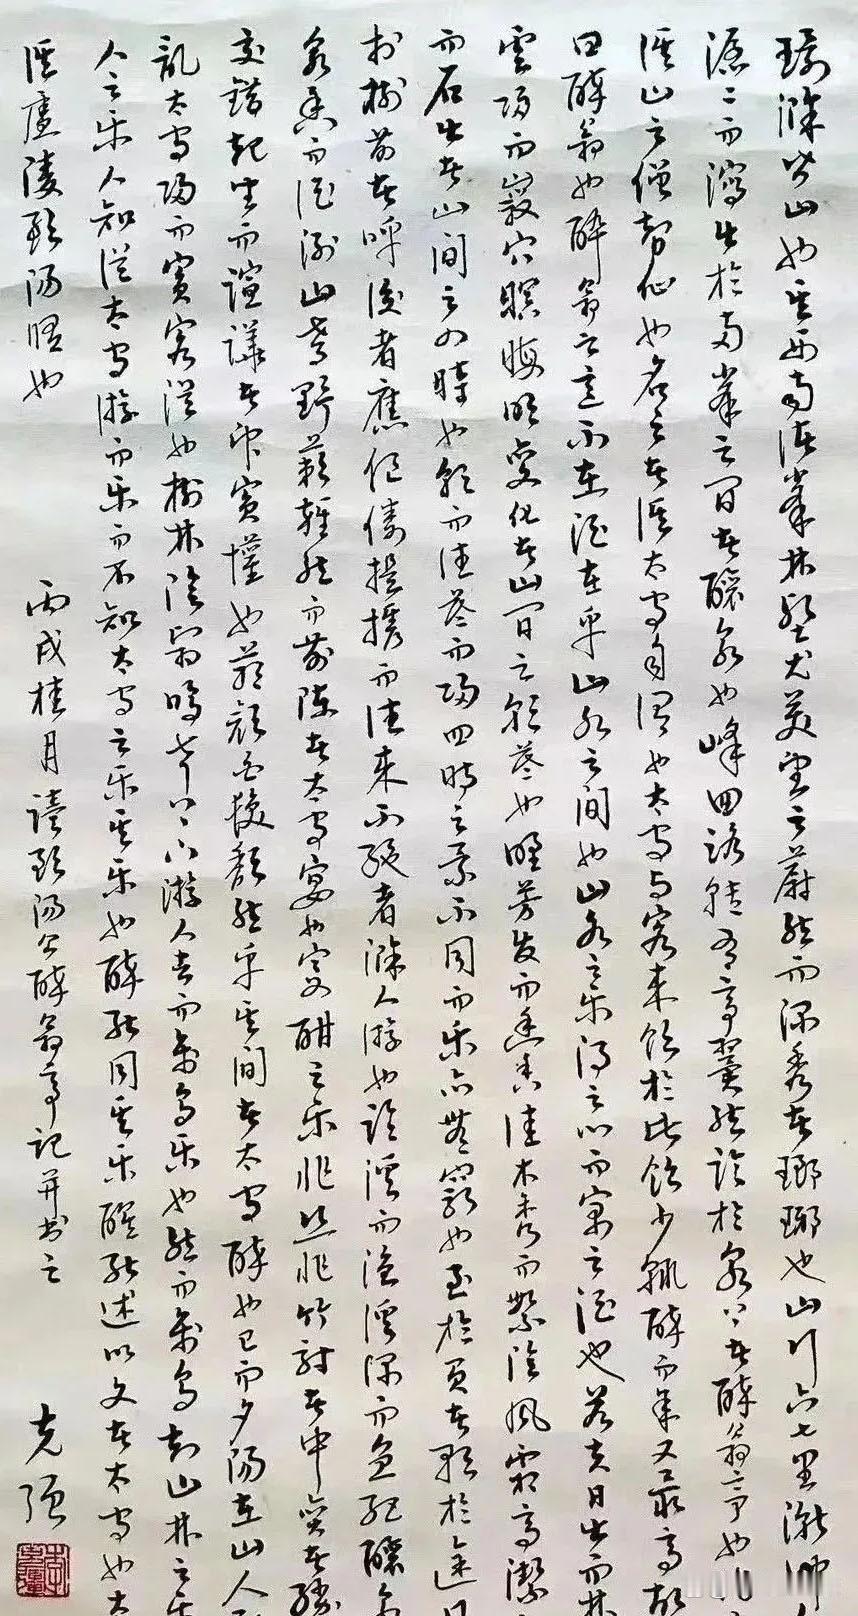 環滁皆山也其西南諸峯林壑尤美望之蔚然而深秀者瑯琊也山行六七里漸聞
潺潺而瀉出於兩峯之間者釀泉也峰回路轉有亭翼然臨於泉上者醉翁亭也作
誰山之僧智仙也名之者誰太守自謂也太守與客來飲於此飲少輒醉而年又最高故
曰醉翁也醉翁之意不在酒在乎山水之間也山水之樂得之心而寓之酒也若夫日出而林
雲歸而巖穴暝晦明變化者山間之朝暮也野芳發而幽香佳木秀而繁陰風霜高潔
而石出者山間之四時也朝而往暮而歸四時之景不同而樂亦無窮也至於負者歌於途行
於樹前者呼後者應傴僂提攜而往來不絕者滁人游也臨溪而漁溪深而魚肥釀泉
泉香而酒洌山肴野蔌雜然而前陳者太守宴也宴酣之樂非絲非竹射者中奕者勝
交錯起坐而諠譁者眾賓懽也蒼顏白髮頹然乎其間者太守醉也已而夕陽在山人影
亂太守歸而賓客從也樹林陰翳鳴聲上下游人去而禽鳥樂也然而禽鳥知山林之樂
人之樂人知從太守游而樂而不知太守之樂其樂也醉能同其樂醒能述以文者太守也太
誰廬陵歐陽脩也
丙戌桂月讀歐陽公醉翁亭記并書之
克強